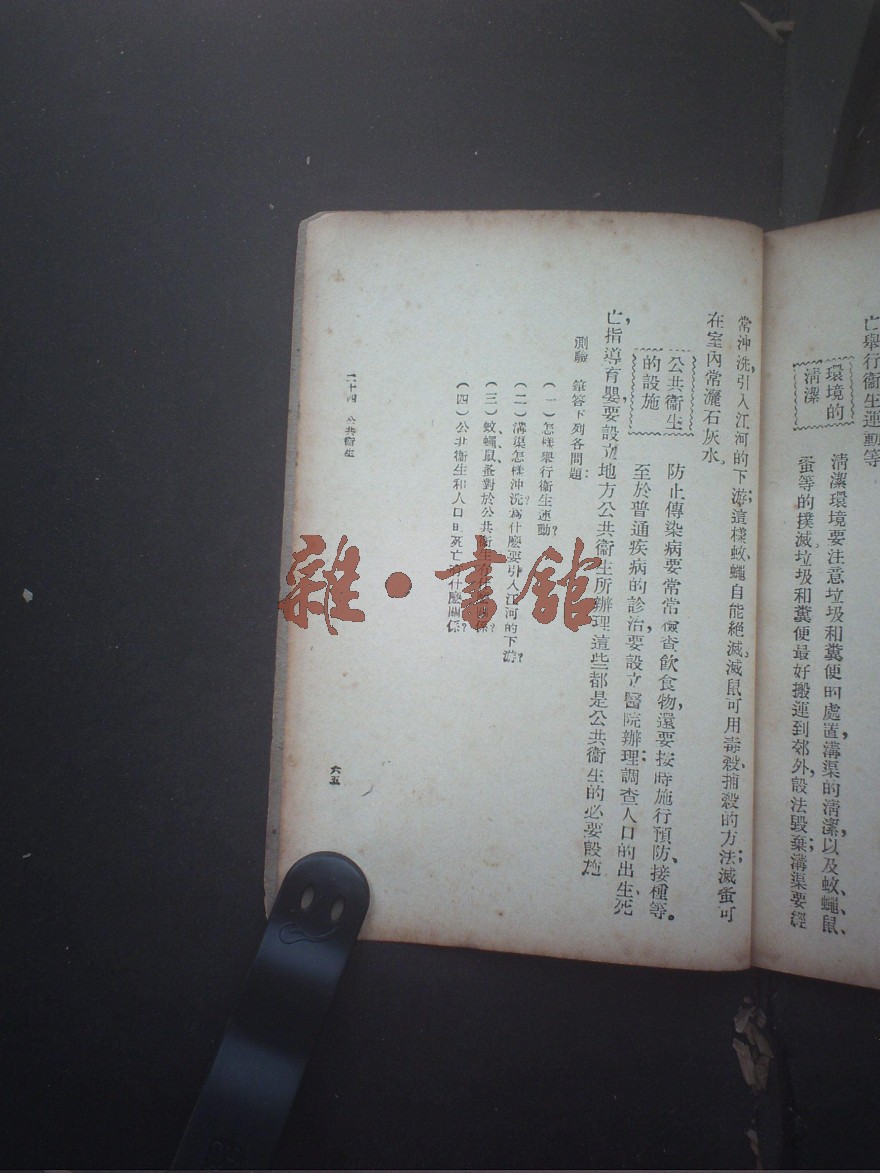 亡舉行衞生運動等
環境的
清潔
清潔環境要注意垃圾和糞便的處置，溝渠的清潔，以及蚊、蠅、鼠、
蚤等的撲滅。垃圾和糞便最好搬運到郊外，設法毀棄；溝渠要經
常沖洗，引入江河的下游；這樣蚊、蠅自能絕滅。滅鼠可用毒殺、捕殺的方法；滅蚤可
在室內常灑石灰水。
公共衞生
的設施
防止傳染病要常常檢查飲食物，還要按時施行預防、接種等。
至於普通疾病的診治，要設立醫院辦理；調查人口的出生、死
亡，指導育嬰，要設立地方公共衞生所辦理。這些都是公共衞生的必要設施
測驗 筆答下列各問題：
（一）怎樣舉行衞生運動？
（二）溝渠怎樣沖洗？為什麼要引入江河的下游？
（三）蚊、蠅、鼠、蚤對於公共衞生有什麼關係？
（四）公共衞生和人口的死亡有什麼關係？
二十四 公共衞生
六五
雜·書館